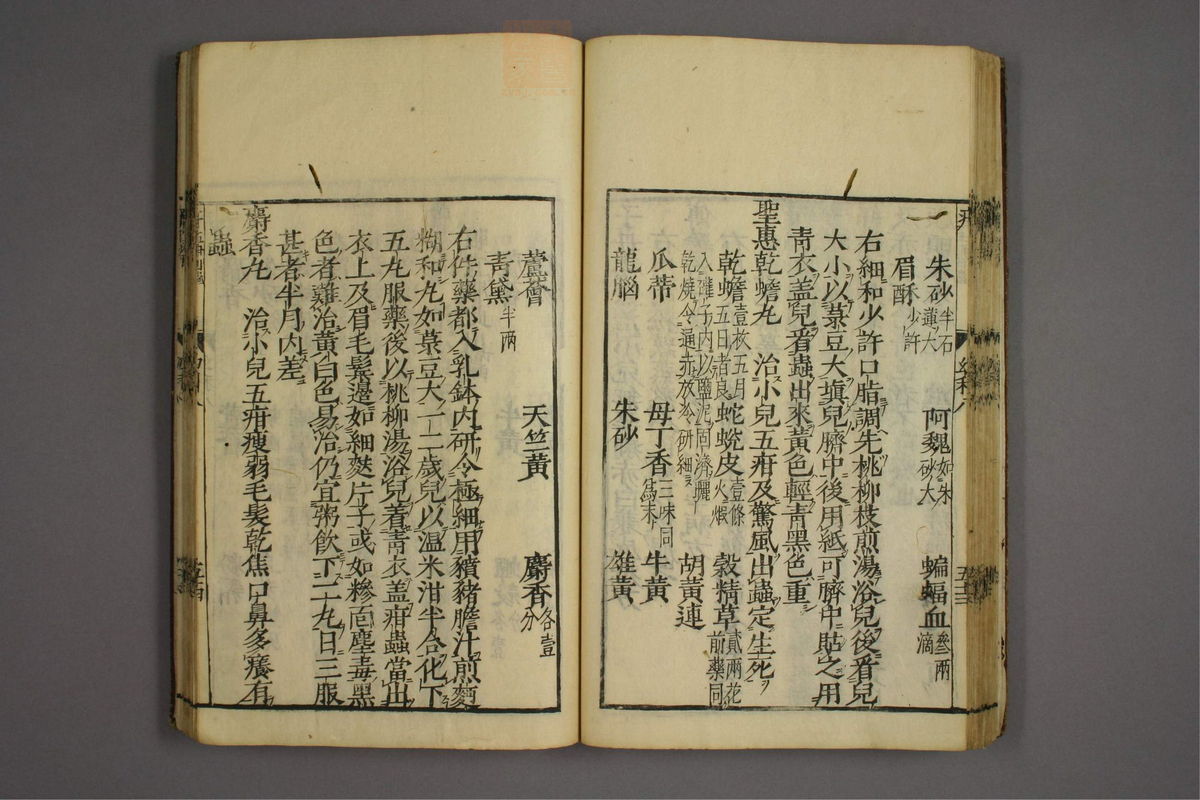 一 朱砂半石蓮大 阿魏如朱砂大 蝙蝠血叁兩滴
眉酥少許
右細和少許口脂調先桃柳枝煎湯浴兒後看兒
大小以菉豆大塡兒臍中後用紙可臍中貼之用
靑衣盖兒看蟲出來黃色輕靑黑色重
聖惠乾蟾丸 治小兒五疳及驚風出蟲定生死
乾蟾壹枚五月五日者良 蛇蛻皮壹條火煆 穀精草貳兩花前藥同
入礶子內以鹽泥固濟曬乾燒令通赤放冷研細 胡黃連
瓜蒂 母丁香三味同爲末 牛黃
龍腦 朱砂 雄黃
蘆薈 天竺黃 麝香各壹分
靑黛半兩
右件藥都入乳鉢內研令極細用豶猪膽汁煎麵
糊和丸如菉豆大一二歲兒以温米泔半合化下
五丸服藥後以桃柳湯浴兒着靑衣盖疳蟲當出
衣上及眉毛鬢邊如細麩片子或如糝面塵毒黑
色者難治黃白色易治仍宜粥飮下二十九日三服
甚者半月內差
麝香丸 治小兒五疳瘦弱毛髮乾焦口鼻多癢有
蟲